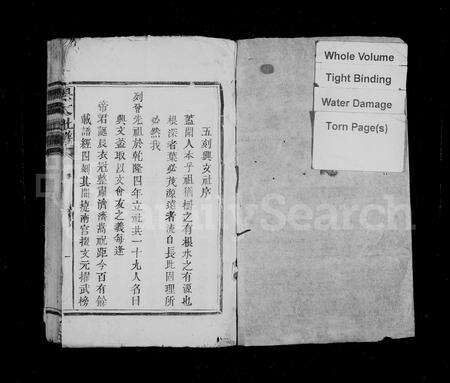 五刻興文祖序
蓋聞人本乎祖猶樹之有根水之有源也
根深者葉必茂源遠者流自長此固理所
必然我
列曾先祖於乾隆四年立祖共一十九人名曰
興文蓋取以文會友之義每逢
帝君誕辰衣冠整肅濟濟
祝距今百有餘
載譜經四刻其間
南宮擢文元耀武榜
Whole Volume
Tight Binding
Water Damage
Torn Page(s)
FamilySearch